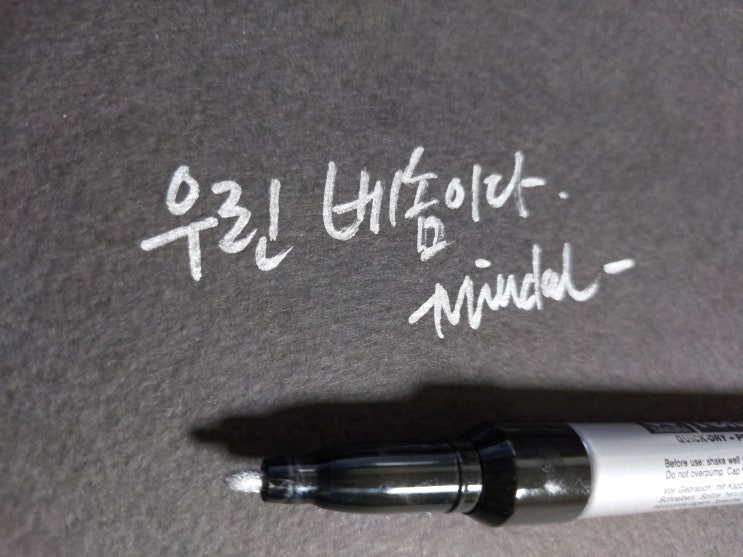 우린 베놈이다.
Mindal -
QUICK-DRY - P
Before use: shake well
Do not overpump. Cap
Vor Gebrauch: mit Kapp
Schreiben. Spitze